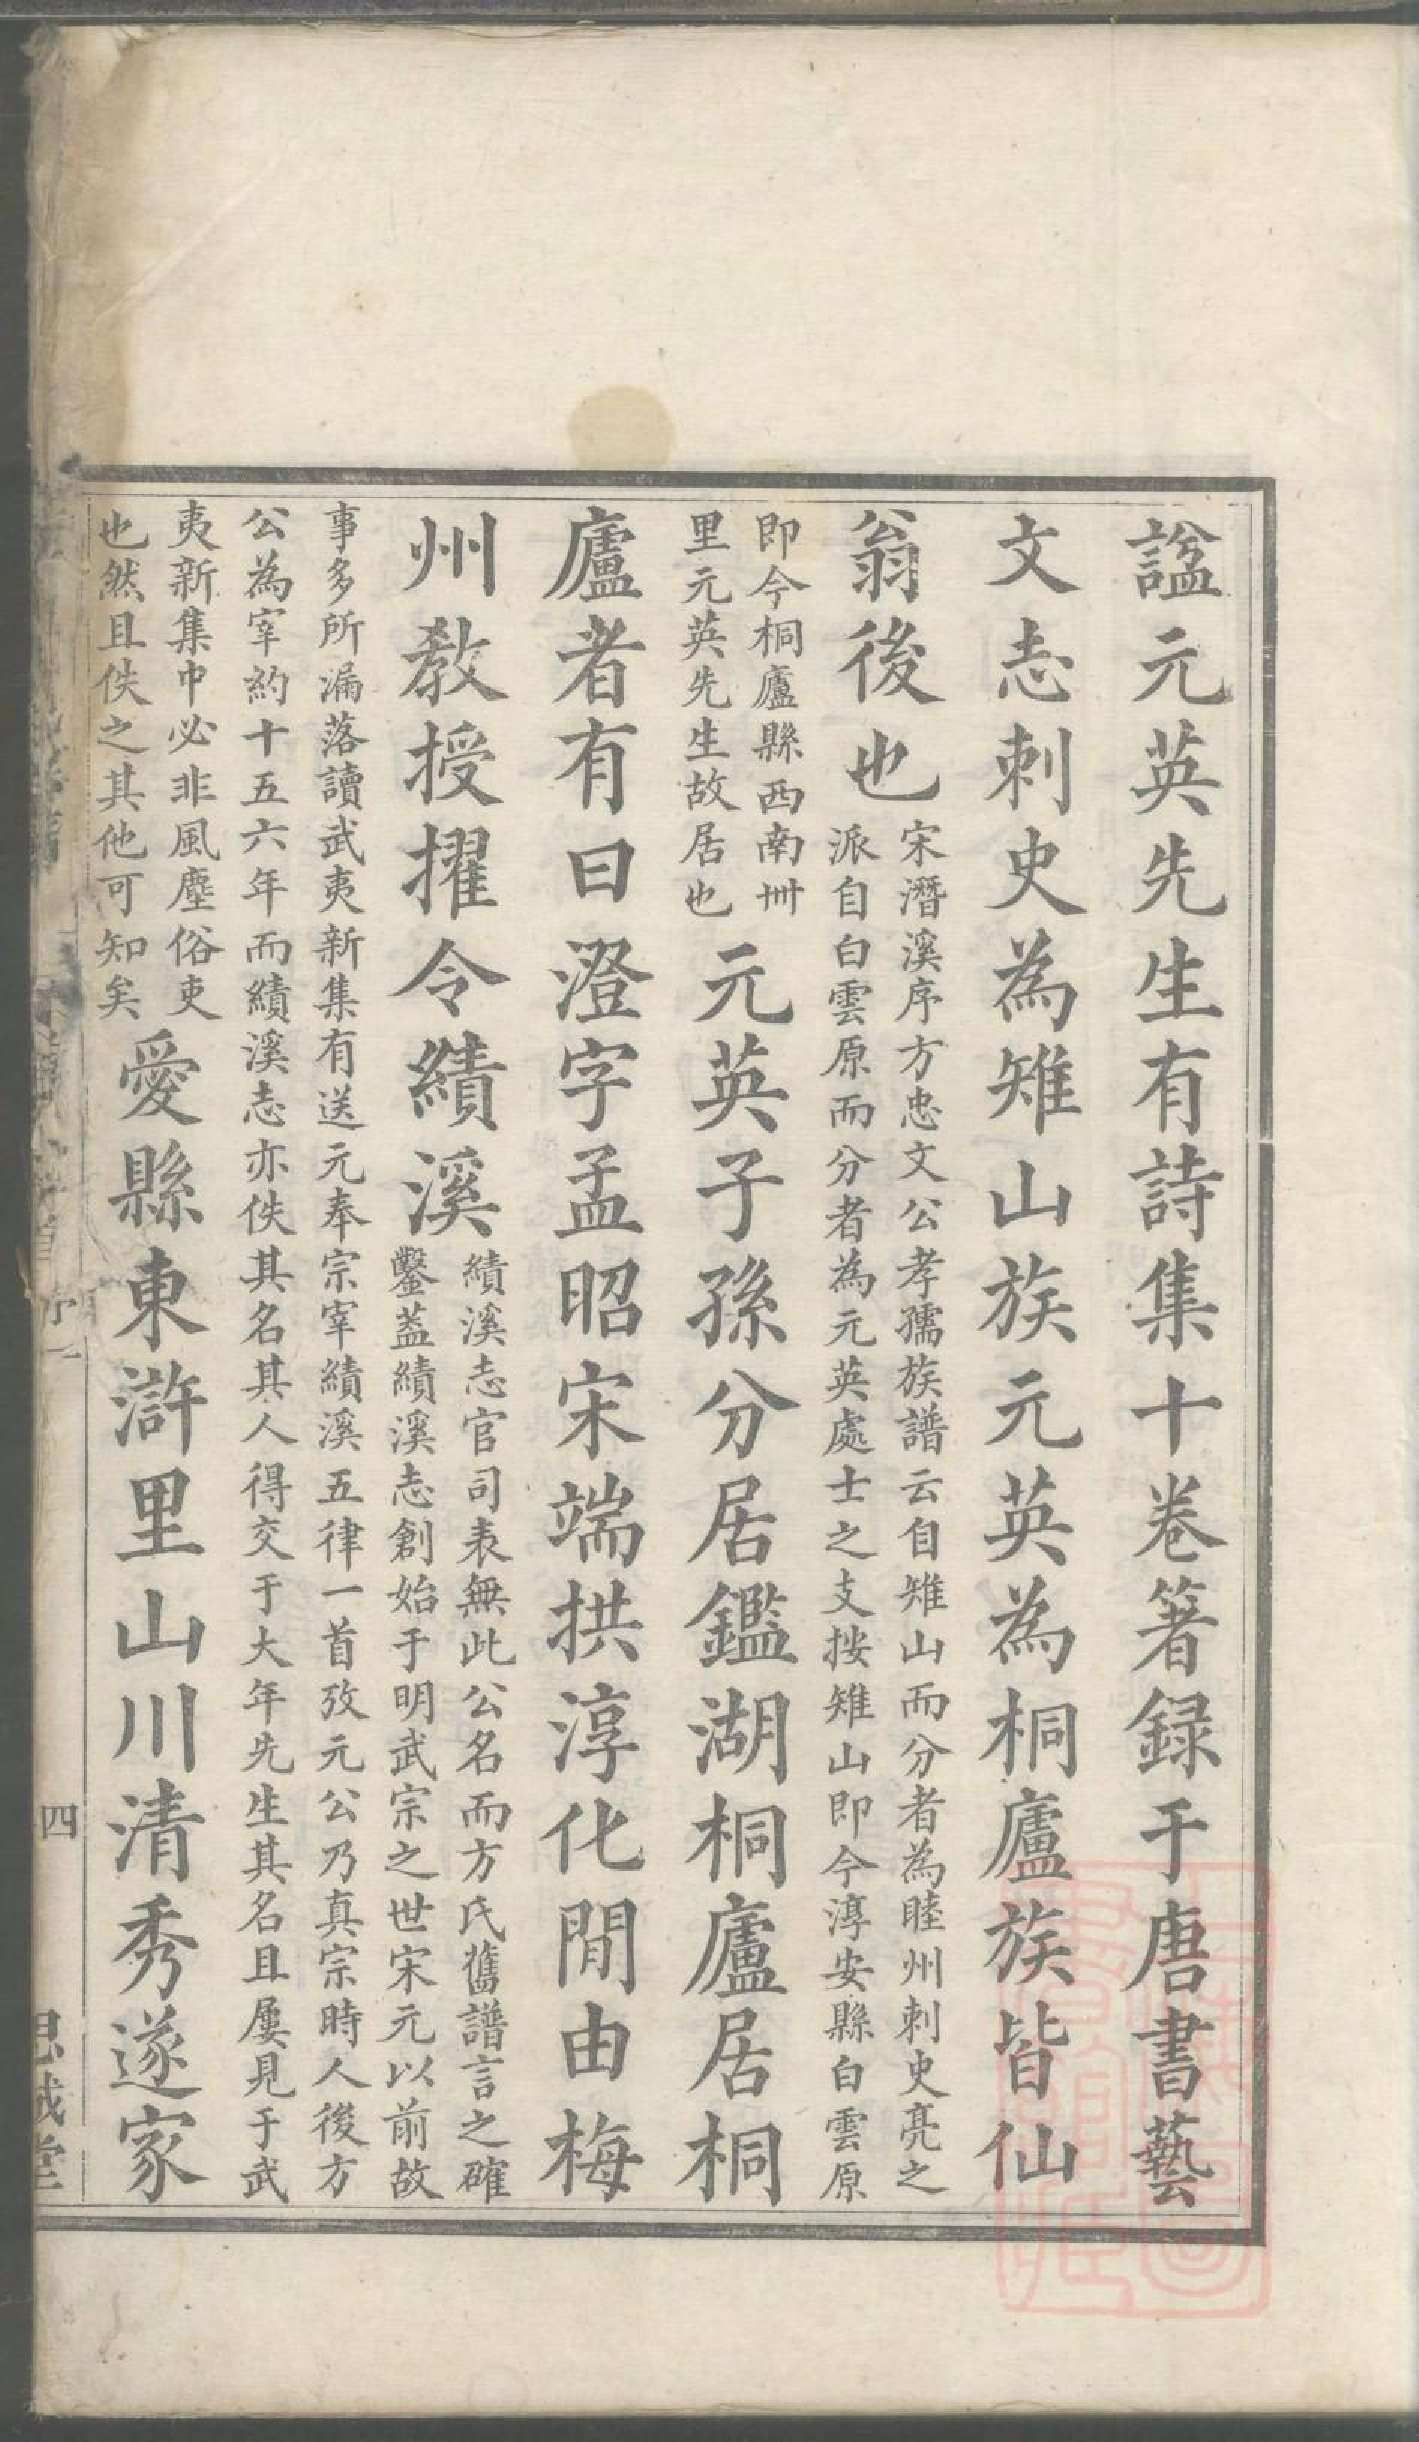 諡元英先生有詩集十卷箸録于唐書藝
文志刺史為雉山族元英為桐廬族皆仙
翁後也
宋潛溪序方忠文公孝孺族譜云自雉山而分者為睦州刺史亮之
派自白雲原而分者為元英處士之支按雉山即今淳安縣白雲原
即今桐廬縣西南卌
里元英先生故居也
元英子孫分居鑑湖桐廬居桐
廬者有曰澄字孟昭宋端拱淳化閒由梅
州教授擢令績溪
績溪志官司表無此公名而方氏舊譜言之確
鑿蓋績溪志創始于明武宗之世宋元以前故
事多所漏落讀武夷新集有送元奉宗宰績溪五律一首攷元公乃真宗時人後方
公為宰約十五六年而績溪志亦佚其名其人得交于大年先生其名且屢見于武
夷新集中必非風塵俗吏
也然且佚之其他可知矣
愛縣東滸里山川清秀遂家
序一
四
思誠堂